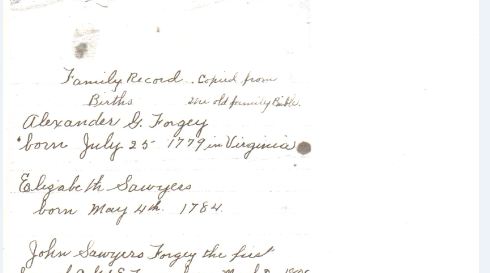 Family Record. Copied from
Births old family Bible.
Alexander G. Forgey
born July 25 1779 in Virginia
Elizabeth Sawyers
born May 4th. 1784.
John Sawyers Forgey the first